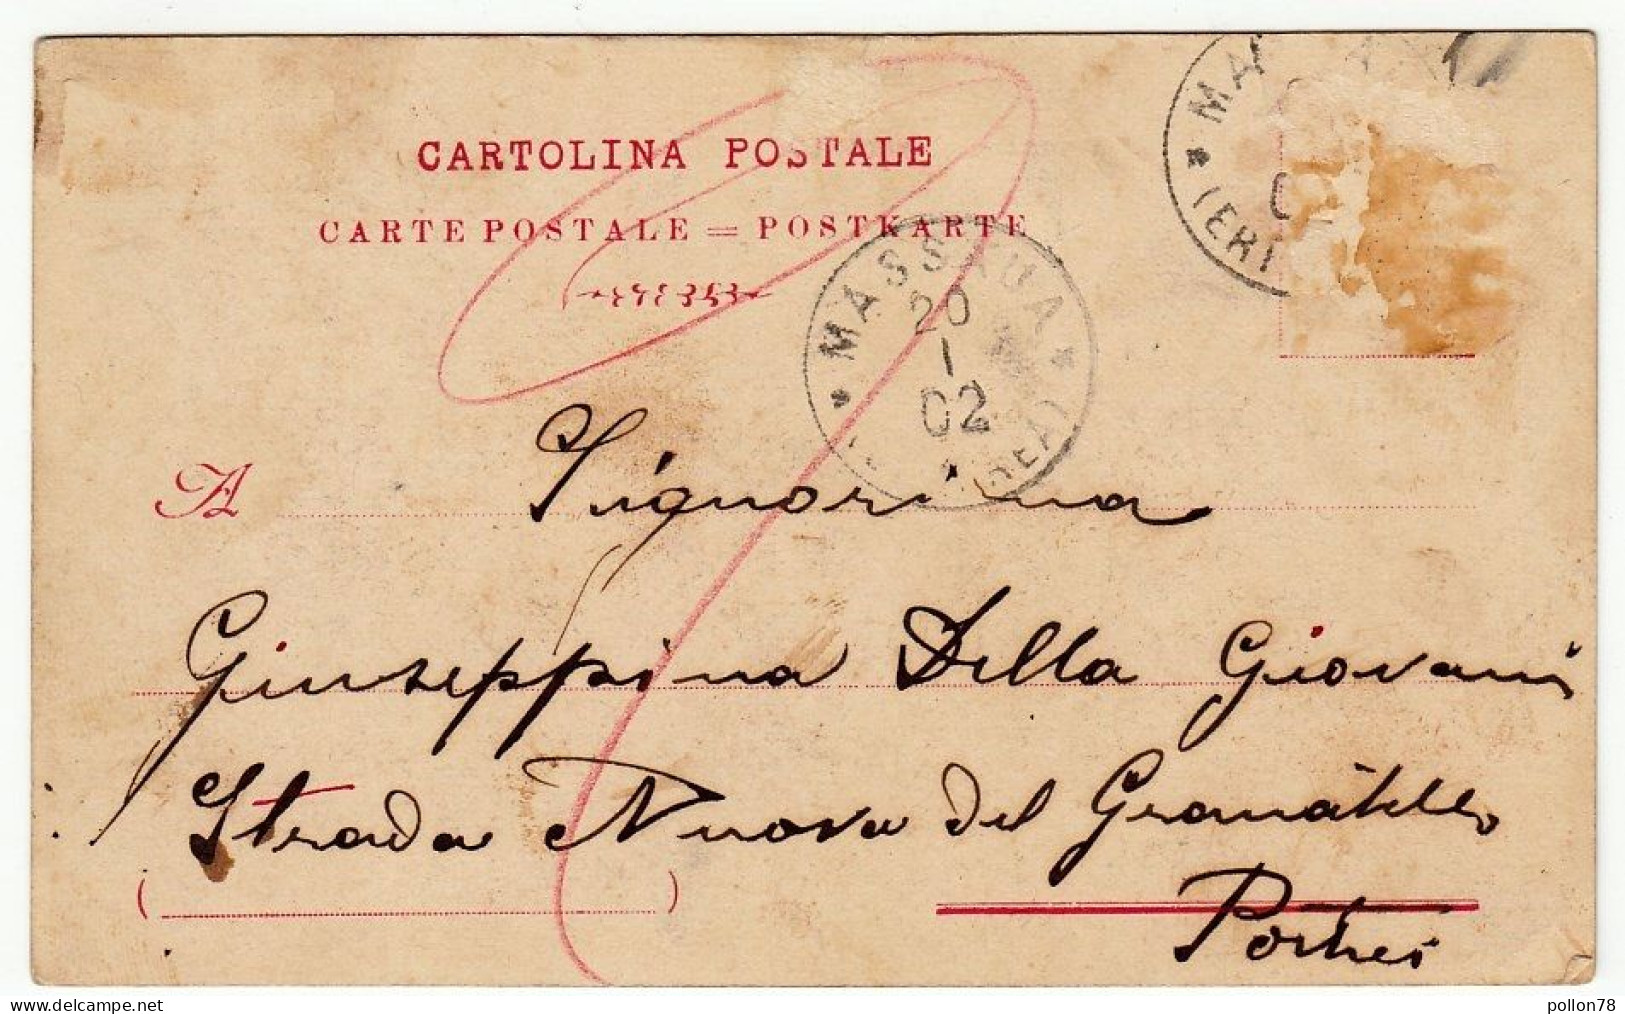 CARTOLINA POSTALE
CARTE POSTALE = POSTKARTE
MASSAUA
20
1
02
(ERI
A Signorina
Giuseppina Della Giovani
Strada Nuova del Granatello
Portici
www.delcampe.net
pollon78